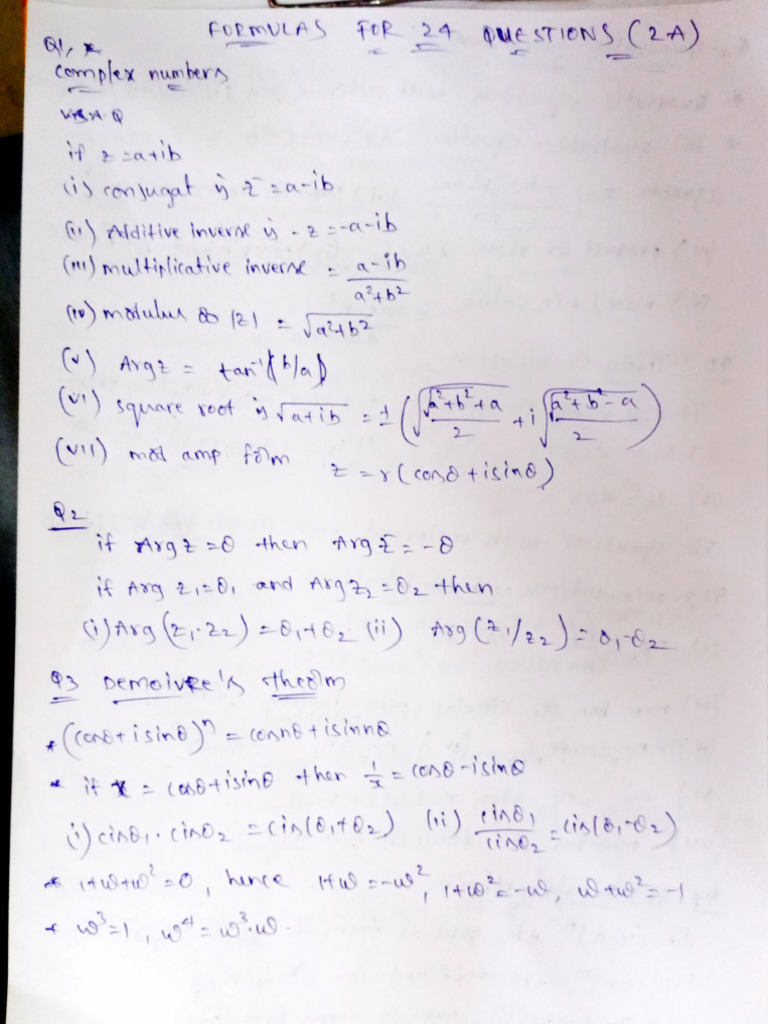 FORMULAS FOR 24 QUESTIONS (2A)
Q1, *
complex numbers
V.S.A.Q
if z = a+ib
(i) conjugat is z̅ = a-ib
(ii) Additive inverse is -z = -a-ib
(iii) multiplicative inverse = (a-ib)/(a²+b²)
(iv) modulus |z| = √(a²+b²)
(v) Arg z = tan⁻¹(b/a)
(vi) square root is √(a+ib) = ±(√((√(a²+b²)+a)/2) + i√((√(a²+b²)-a)/2))
(vii) mod amp form z = r(cosθ + isinθ)
Q2
if Arg z = θ then Arg z̅ = -θ
if Arg z₁ = θ₁ and Arg z₂ = θ₂ then
(i) Arg(z₁·z₂) = θ₁+θ₂ (ii) Arg(z₁/z₂) = θ₁-θ₂
Q3 Demoivre's theorm
* (cosθ + isinθ)ⁿ = cosnθ + isinnθ
* if x = cosθ + isinθ then 1/x = cosθ - isinθ
(i) cisθ₁ · cisθ₂ = cis(θ₁+θ₂) (ii) cisθ₁/cisθ₂ = cis(θ₁-θ₂)
* 1+ω+ω² = 0, hence 1+ω = -ω², 1+ω² = -ω, ω+ω² = -1
* ω³ = 1, ω⁴ = ω³·ω.